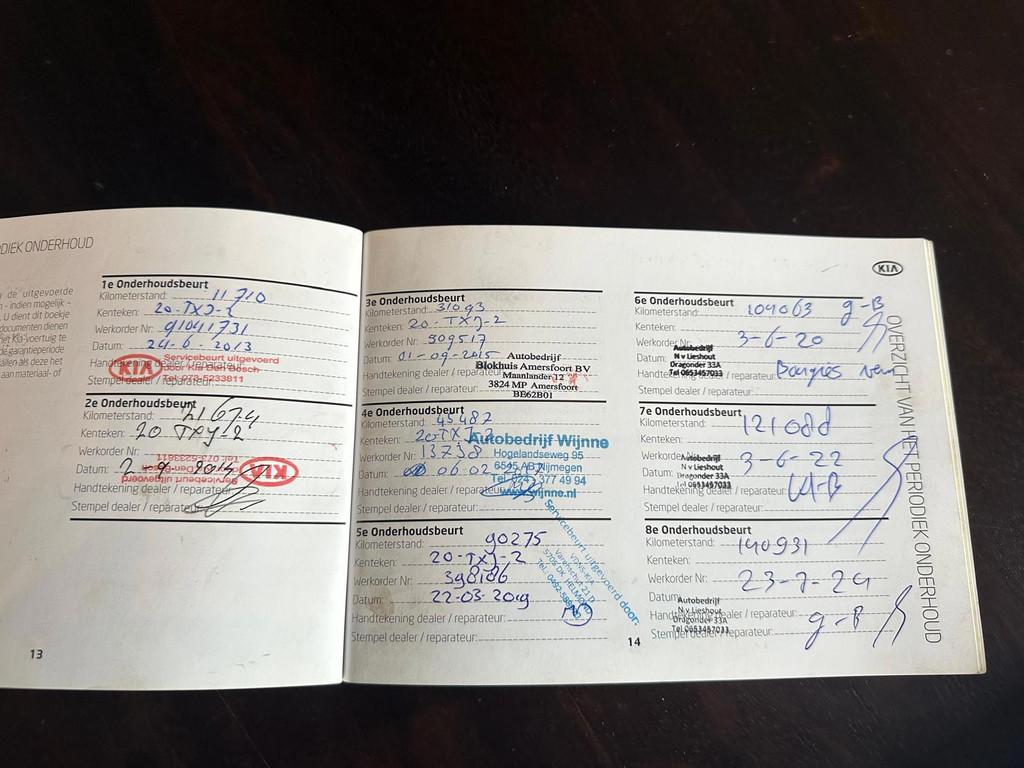 DIEK ONDERHOUD
de uitgevoerde
- indien mogelijk -
U dient dit boekje
documenten dienen
Kia-voertuig te
garantieperiode
als deze het
aan materiaal- of
1e Onderhoudsbeurt
Kilometerstand: 11710
Kenteken: 20-TXJ-2
Werkorder Nr: 91041731
Datum: 24-6-2013
Servicebeurt uitgevoerd
door Kia Den Bosch
Tel. 073-6233811
KIA
Handtekening dealer / reparateur:
Stempel dealer / reparateur:
2e Onderhoudsbeurt
Kilometerstand: 21674
Kenteken: 20 TXJ-2
Werkorder Nr:
Datum: 2-9-2014
Servicebeurt uitgevoerd
KIA
Handtekening dealer / reparateur:
Stempel dealer / reparateur:
13
3e Onderhoudsbeurt
Kilometerstand: 31093
Kenteken: 20-TXJ-2
Werkorder Nr: 509517
Datum: 01-09-2015
Autobedrijf
Blokhuis Amersfoort BV
Maanlander 12
3824 MP Amersfoort
BE62B01
Handtekening dealer / reparateur:
Stempel dealer / reparateur:
4e Onderhoudsbeurt
Kilometerstand: 45487
Kenteken: 20TXJ-2
Werkorder Nr: 13738
Datum: 06.02
Autobedrijf Wijnne
Hogelandseweg 95
6545 AB Nijmegen
Tel 024 377 49 94
www.wijnne.nl
Handtekening dealer / reparateur:
Stempel dealer / reparateur:
5e Onderhoudsbeurt
Kilometerstand: 90275
Kenteken: 20-TXJ-2
Werkorder Nr: 398186
Datum: 22-03-2019
Servicebeurt uitgevoerd door:
Handtekening dealer / reparateur:
Stempel dealer / reparateur:
14
KIA
OVERZICHT VAN HET PERIODIEK ONDERHOUD
6e Onderhoudsbeurt
Kilometerstand: 109063 g-B
Kenteken:
Werkorder Nr: 3-6-20
Datum:
Autobedrijf
N v Lieshout
Dragonder 33A
Tel 0653457033
Handtekening dealer / reparateur:
Stempel dealer / reparateur:
7e Onderhoudsbeurt
Kilometerstand:
Kenteken:
Werkorder 3-6-22
Datum:
Autobedrijf
N v Lieshout
Dragonder 33A
Tel 0653457033
Handtekening dealer / reparateur:
Stempel dealer / reparateur:
8e Onderhoudsbeurt
Kilometerstand: 140931
Kenteken:
Werkorder Nr: 23-7-24
Datum:
Autobedrijf
N v Lieshout
Dragonder 33A
Tel 0653457033
Handtekening dealer / reparateur: g-B
Stempel dealer / reparateur: